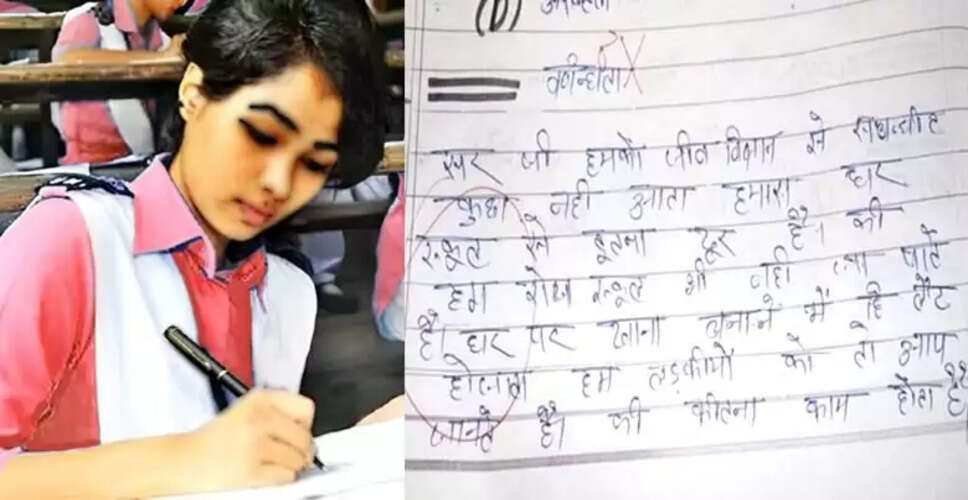 (b)
वर्णन्धता
सर जी हमको जीव विज्ञान से सम्बन्धीत
कुछ नही आता हमारा घर
स्कूल से इतना दूर है। की
हम रोज स्कूल भी नही जा पाते
है। घर पर खाना बनाने में हि लेट
होजाता हम लड़कीयों को तो आप
जानते है। की कीतना काम होता है